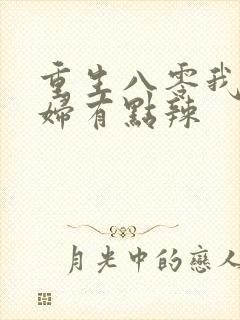 重生八零我
婦有點辣
月光中的戀人